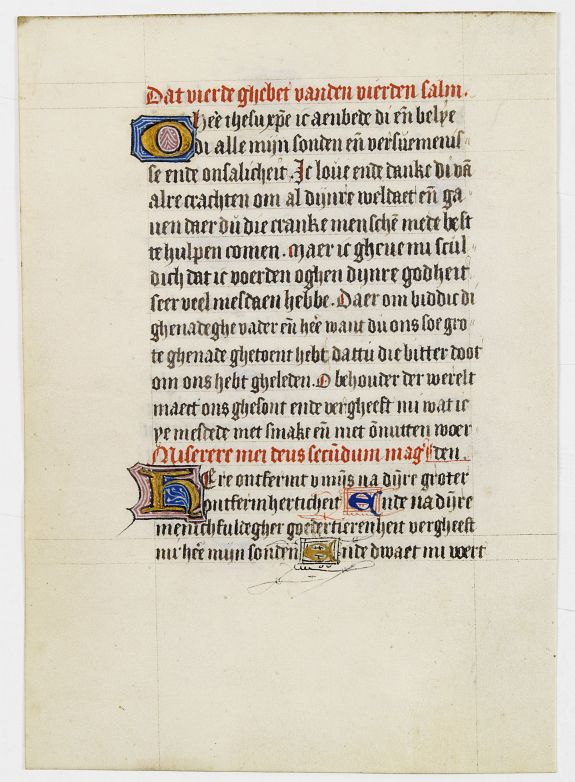 Dat vierde ghebet vanden vierden salm.
O hēe ihesu xpē ic aenbede di eñ belye
di alle mijn sonden eñ versumenis⸗
se ende onsalicheit. Ic loue ende danke di vā
alre crachten om al dijnre weldaet eñ ga⸗
uen daer du die cranke menschē mede best
te hulpen comen. Maer ic gheue mi scul⸗
dich dat ic voerden oghen dijnre godheit
seer veel mesdaen hebbe. Daer om biddic di
ghenadeghe vader eñ hēe want du ons soe gro⸗
te ghenade ghetoent hebt dattu die bitter doot
om ons hebt gheleden. O behouder der werelt
maect ons ghesont ende vergheeft mi wat ic
ye mesdede met smake eñ met ōnutten woer
Miserere mei deus secūdum mag' den.
HEre ontfermt v mijs na dijre groter
ontfermherticheit Ende na dijre
menichfuldegher goedertierenheit vergheeft
mi hēe mijn sonden Ende dwaet mi voert